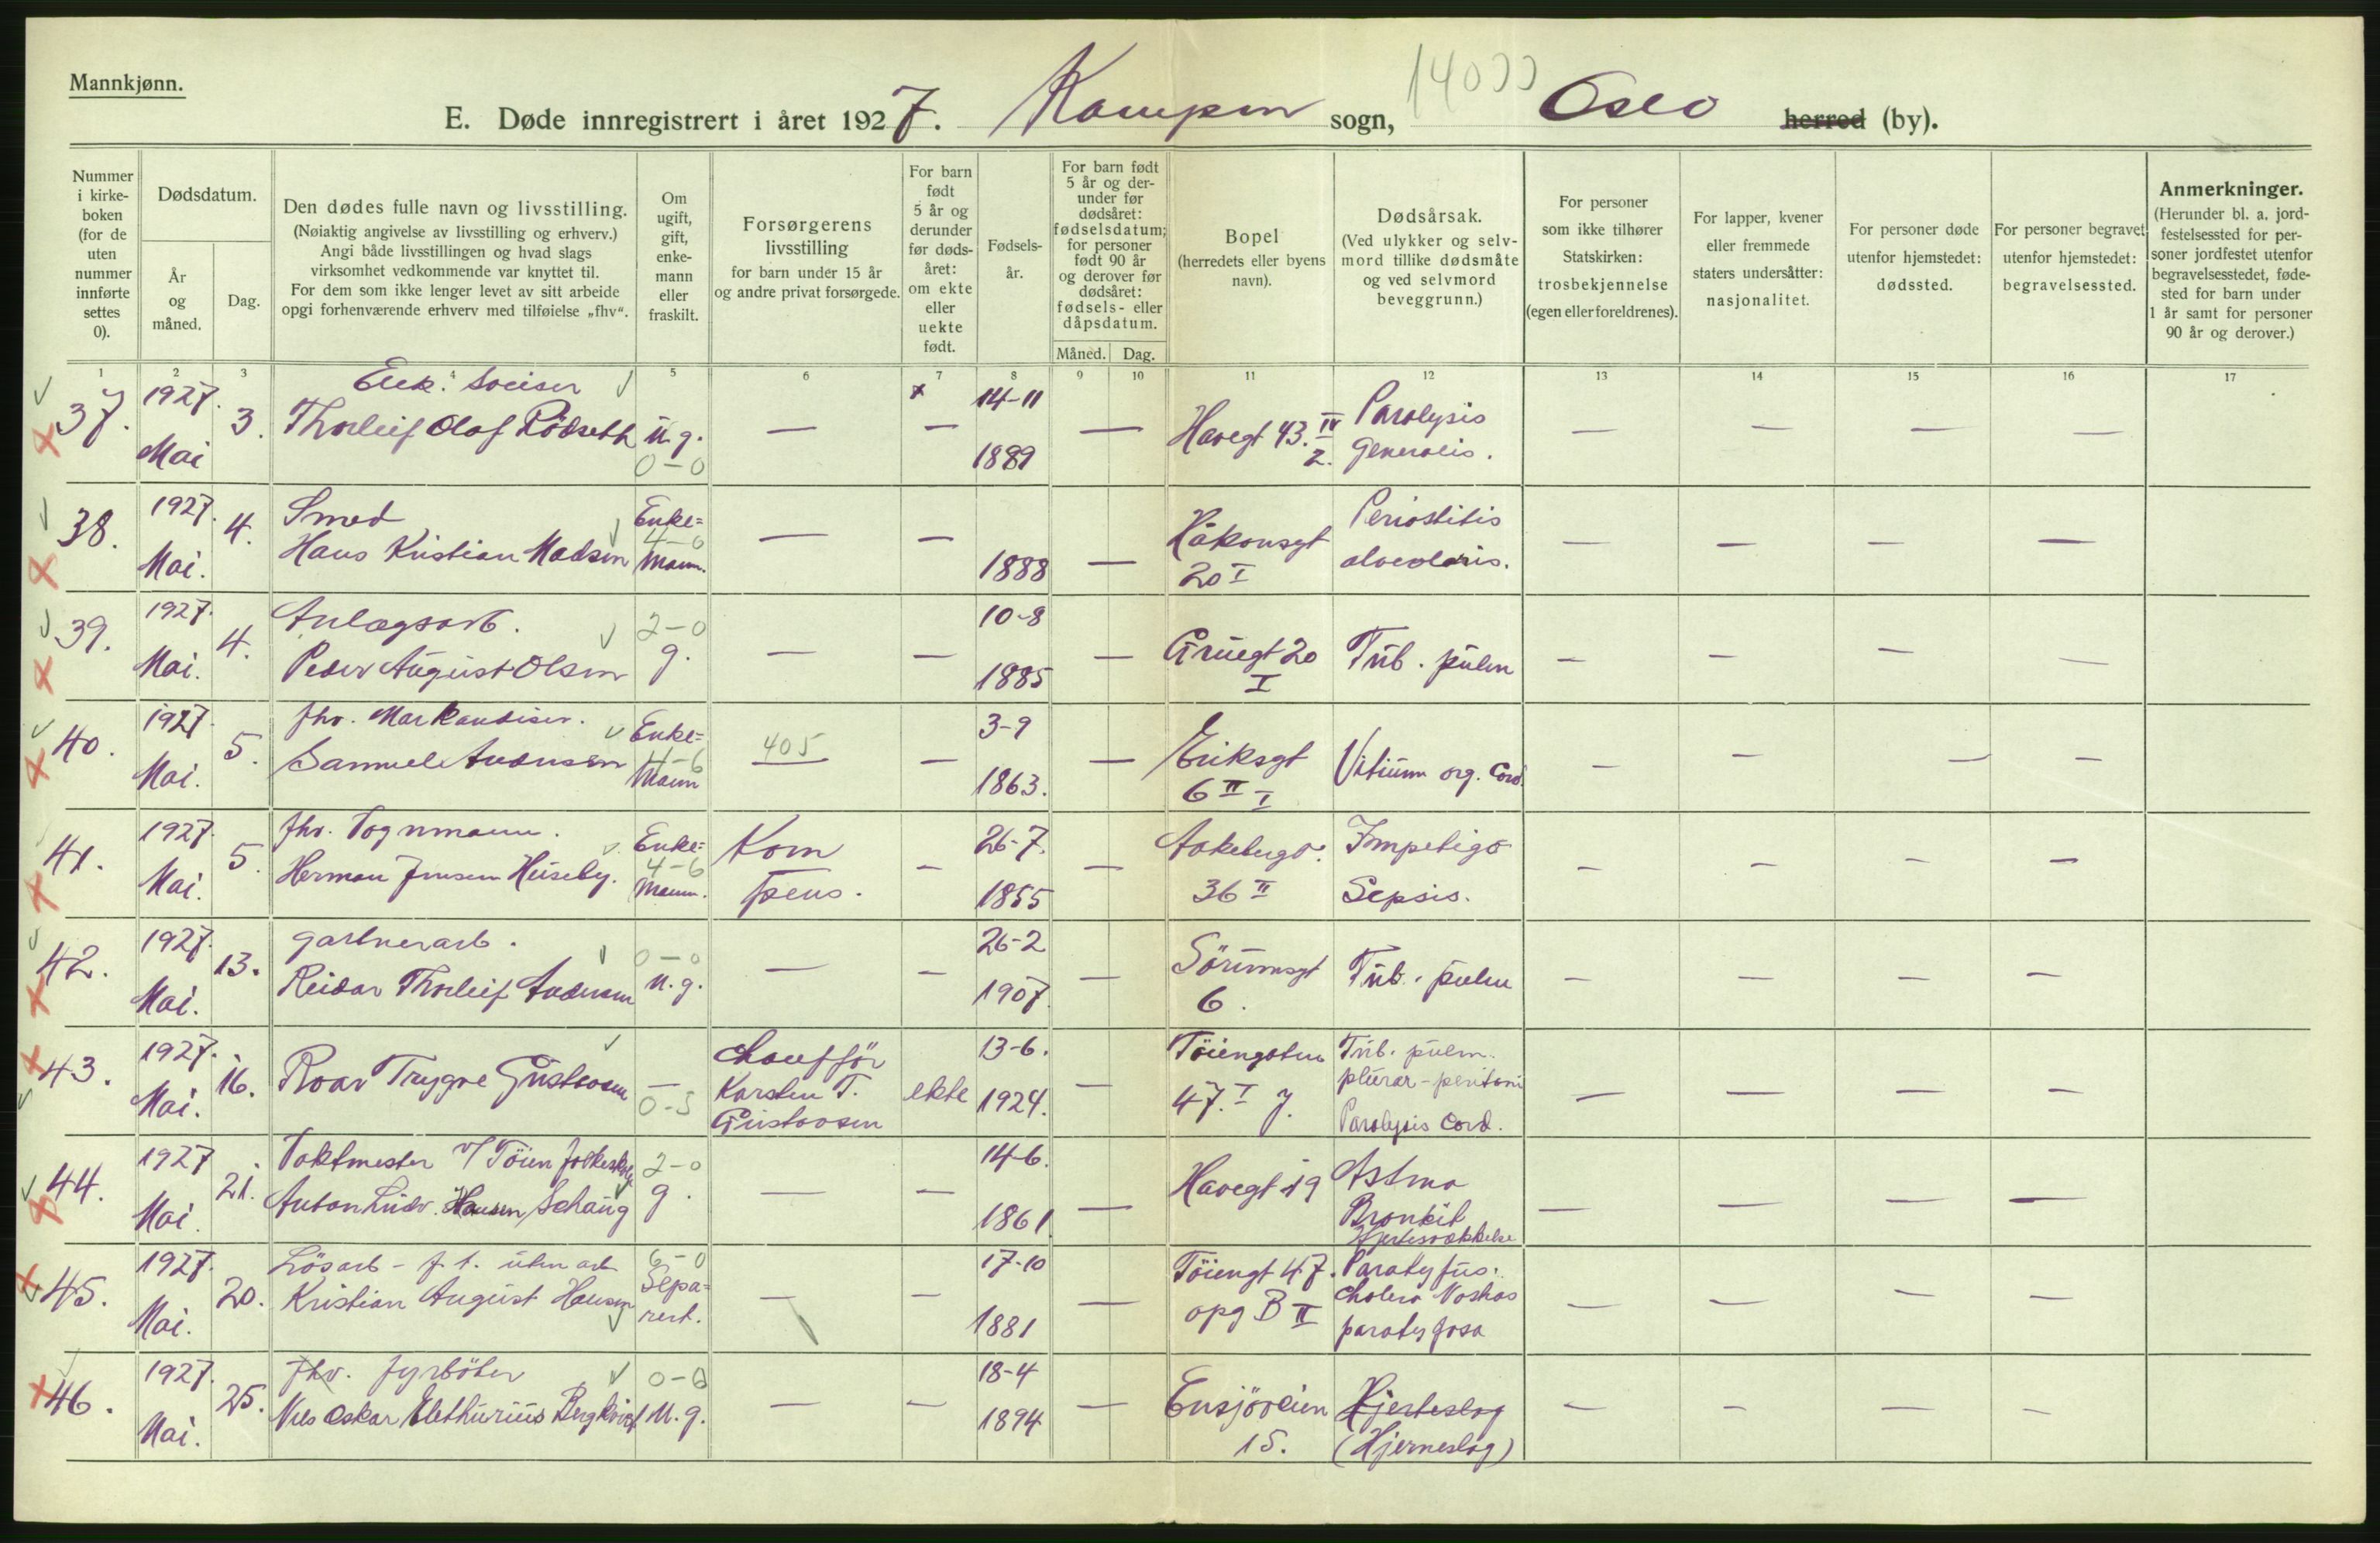 Mannkjønn.
14033
E. Døde innregistrert i året 1927. Kampen sogn, Oslo herred (by).
Nummer i kirke-boken (for de uten nummer innførte settes 0).
Dødsdatum.
År og måned.
Dag.
Den dødes fulle navn og livsstilling.
(Nøiaktig angivelse av livsstilling og erhverv.)
Angi både livsstillingen og hvad slags
virksomhet vedkommende var knyttet til.
For dem som ikke lenger levet av sitt arbeide
opgi forhenværende erhverv med tilføielse „fhv“.
Om ugift, gift, enke-mann eller fraskilt.
Forsørgerens livsstilling
for barn under 15 år
og andre privat forsørgede.
For barn født 5 år og derunder før døds-året: om ekte eller uekte født.
Fødsels-år.
For barn født 5 år og der-under før dødsåret: fødselsdatum; for personer født 90 år og derover før dødsåret: fødsels- eller dåpsdatum.
Måned. Dag.
Bopel
(herredets eller byens navn).
Dødsårsak.
(Ved ulykker og selv-mord tillike dødsmåte og ved selvmord beveggrunn.)
For personer som ikke tilhører Statskirken: trosbekjennelse (egen eller foreldrenes).
For lapper, kvener eller fremmede staters undersåtter: nasjonalitet.
For personer døde utenfor hjemstedet: dødssted.
For personer begravet utenfor hjemstedet: begravelsessted.
Anmerkninger.
(Herunder bl. a. jord-festelsessted for per-soner jordfestet utenfor begravelsesstedet, føde-sted for barn under 1 år samt for personer 90 år og derover.)
1 2 3 4 5 6 7 8 9 10 11 12 13 14 15 16 17
37. 1927. Mai 3.
Thorleif Olaf Rödseth u. g. 0-0 — — 14-11 1889 — Havegt 43. IV 2. Paralysis Generalis. — — — —
38. 1927. Mai. 4. Smed
Hans Kristian Madsen Enke= 4-0 Mann. — — 1888 — Håkonsgt 20 I Periostitis alveolaris. — — — —
39. 1927. Mai. 4. Anlægsarb.
Peder August Olsen 2-0 g. — — 10-8 1885 — Gruegt 20 I Tub. pulm — — — —
40. 1927. Mai. 5. fhv. Markandiser.
Samuel Andersen Enke= 4-6 Mann 405 — 3-9 1863. — Eriksgt 6 II I Vitium org. Cord. — — — —
41. 1927. Mai. 5. fhv. Vognmann.
Herman Jensen Huseby. Enke= 4-6 Mann. Kom pens. — 26-7. 1855 — Aakebergv. 36 II Impetigo Sepsis. — — — —
42. 1927. Mai. 13. gartnerarb.
Reidar Thorleif Andersen 0-0 u. g. — — 26-2 1907 — Sörumsgt 6. Tub. pulm — — — —
43. 1927. Mai. 16. Roar Trygve Gustavsen — 0-5 Chauffør Karsten T. Gustavsen ekte 13-6. 1924. — Töiengaten 47. I 7. Tub. pulm. plurar-peritoni Paralysis Cord. — — — —
44. 1927 Mai. 21. Vaktmester v/ Töien folkeskole
Anton Ludv. Hansen Schaug 2-0 g. — — 14-6. 1861 — Havegt 19 Astma Bronkit Hjertesvækkelse — — — —
45. 1927. Mai. 20. Lösarb - f. t. uten arb
Kristian August Hansen 6-0 Sepa= rert. — — 17-10 1881 — Töiengt 47. opg B II Paratyfus. Cholera Nostras paratyfosa — — — —
46. 1927. Mai. 25. fhv. fyrböter
Nils Oskar Elethurius Bergkvist 0-0 u. g. — — 18-4 1894 — Ensjöveien 15. Hjerteslag (Hjerneslag) — — — —